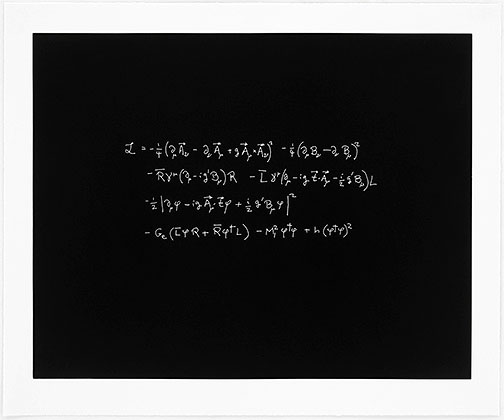 ℒ = -¼(∂_μ A⃗_ν - ∂_ν A⃗_μ + g A⃗_μ × A⃗_ν)² - ¼(∂_μ B_ν - ∂_ν B_μ)²
- R̄ γ^μ (∂_μ - ig'B_μ) R - L̄ γ^μ (∂_μ - ig t⃗·A⃗_μ - i½ g'B_μ) L
- ½ |∂_μ φ - ig A⃗_μ·t⃗ φ + i½ g'B_μ φ|²
- G_e (L̄ φ R + R̄ φ† L) - M₁² φ†φ + h (φ†φ)²